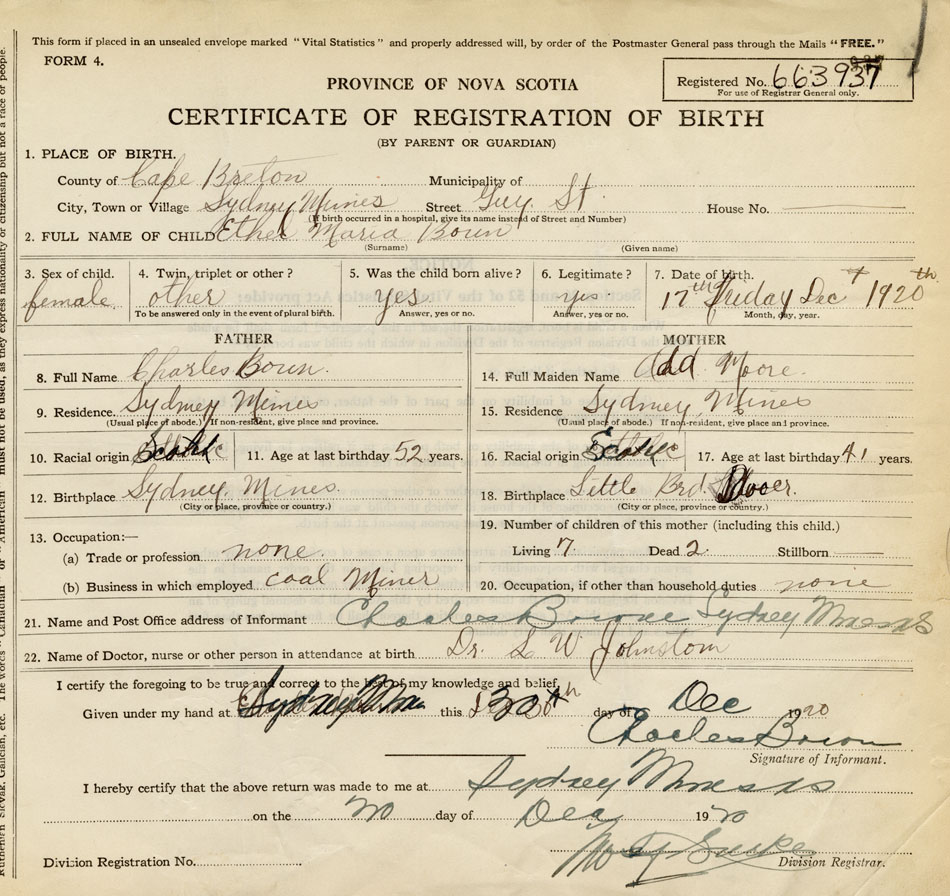 This form if placed in an unsealed envelope marked "Vital Statistics" and properly addressed will, by order of the Postmaster General pass through the Mails "FREE."
FORM 4.
Registered No. 663937
For use of Registrar General only.
PROVINCE OF NOVA SCOTIA
CERTIFICATE OF REGISTRATION OF BIRTH
(BY PARENT OR GUARDIAN)
1. PLACE OF BIRTH.
County of Cape Breton Municipality of
City, Town or Village Sydney Mines Street Guy St House No.
(If birth occurred in a hospital, give its name instead of Street and Number)
2. FULL NAME OF CHILD Ethel Maria Boun
(Surname) (Given name)
3. Sex of child. 4. Twin, triplet or other? 5. Was the child born alive? 6. Legitimate? 7. Date of birth.
female other yes yes 17th Friday Dec 1920th
To be answered only in the event of plural birth. Answer, yes or no. Answer, yes or no. Month, day, year.
FATHER MOTHER
8. Full Name Charles Boun. 14. Full Maiden Name Add Moore.
9. Residence. Sydney Mines 15. Residence Sydney Mines
(Usual place of abode.) If non-resident, give place and province. (Usual place of abode.) If non-resident, give place and province.
10. Racial origin 11. Age at last birthday 52 years. 16. Racial origin 17. Age at last birthday 41 years.
12. Birthplace Sydney Mines. 18. Birthplace Little Brd.
(City or place, province or country.) (City or place, province or country.)
13. Occupation:— 19. Number of children of this mother (including this child.)
(a) Trade or profession none. Living 7 Dead 2. Stillborn
(b) Business in which employed coal Miner 20. Occupation, if other than household duties none
21. Name and Post Office address of Informant Charles Sydney
22. Name of Doctor, nurse or other person in attendance at birth. Dr. L W Johnstom
I certify the foregoing to be true and correct to the best of my knowledge and belief.
Given under my hand at Sydney this day of Dec 1920
Charles
Signature of Informant.
I hereby certify that the above return was made to me at Sydney
on the 20 day of Dec 1920
Division Registration No. Division Registrar.
The words "Canadian" or "American" must not be used, as they express nationality or citizenship but not a race or people.
Ruthenien Slovak, Galician, etc.